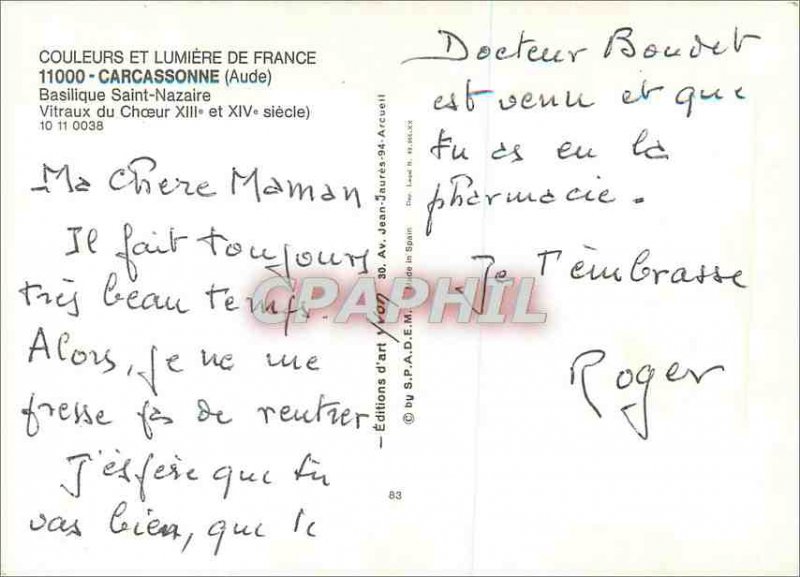 COULEURS ET LUMIÈRE DE FRANCE
11000 - CARCASSONNE (Aude)
Basilique Saint-Nazaire
Vitraux du Chœur XIIIe et XIVe siècle)
10 11 0038
Ma chère Maman
Il fait toujours
très beau temps.
Alors, je ne me
presse pas de rentrer
J'espère que tu
vas bien, que le
Docteur Boudet
est venu et que
tu as eu la
pharmacie.
Je t'embrasse
Roger
Éditions d'art yvon 30. Av. Jean-Jaurès-94-Arcueil
© by S.P.A.D.E.M. Made in Spain
83
CPAPHIL